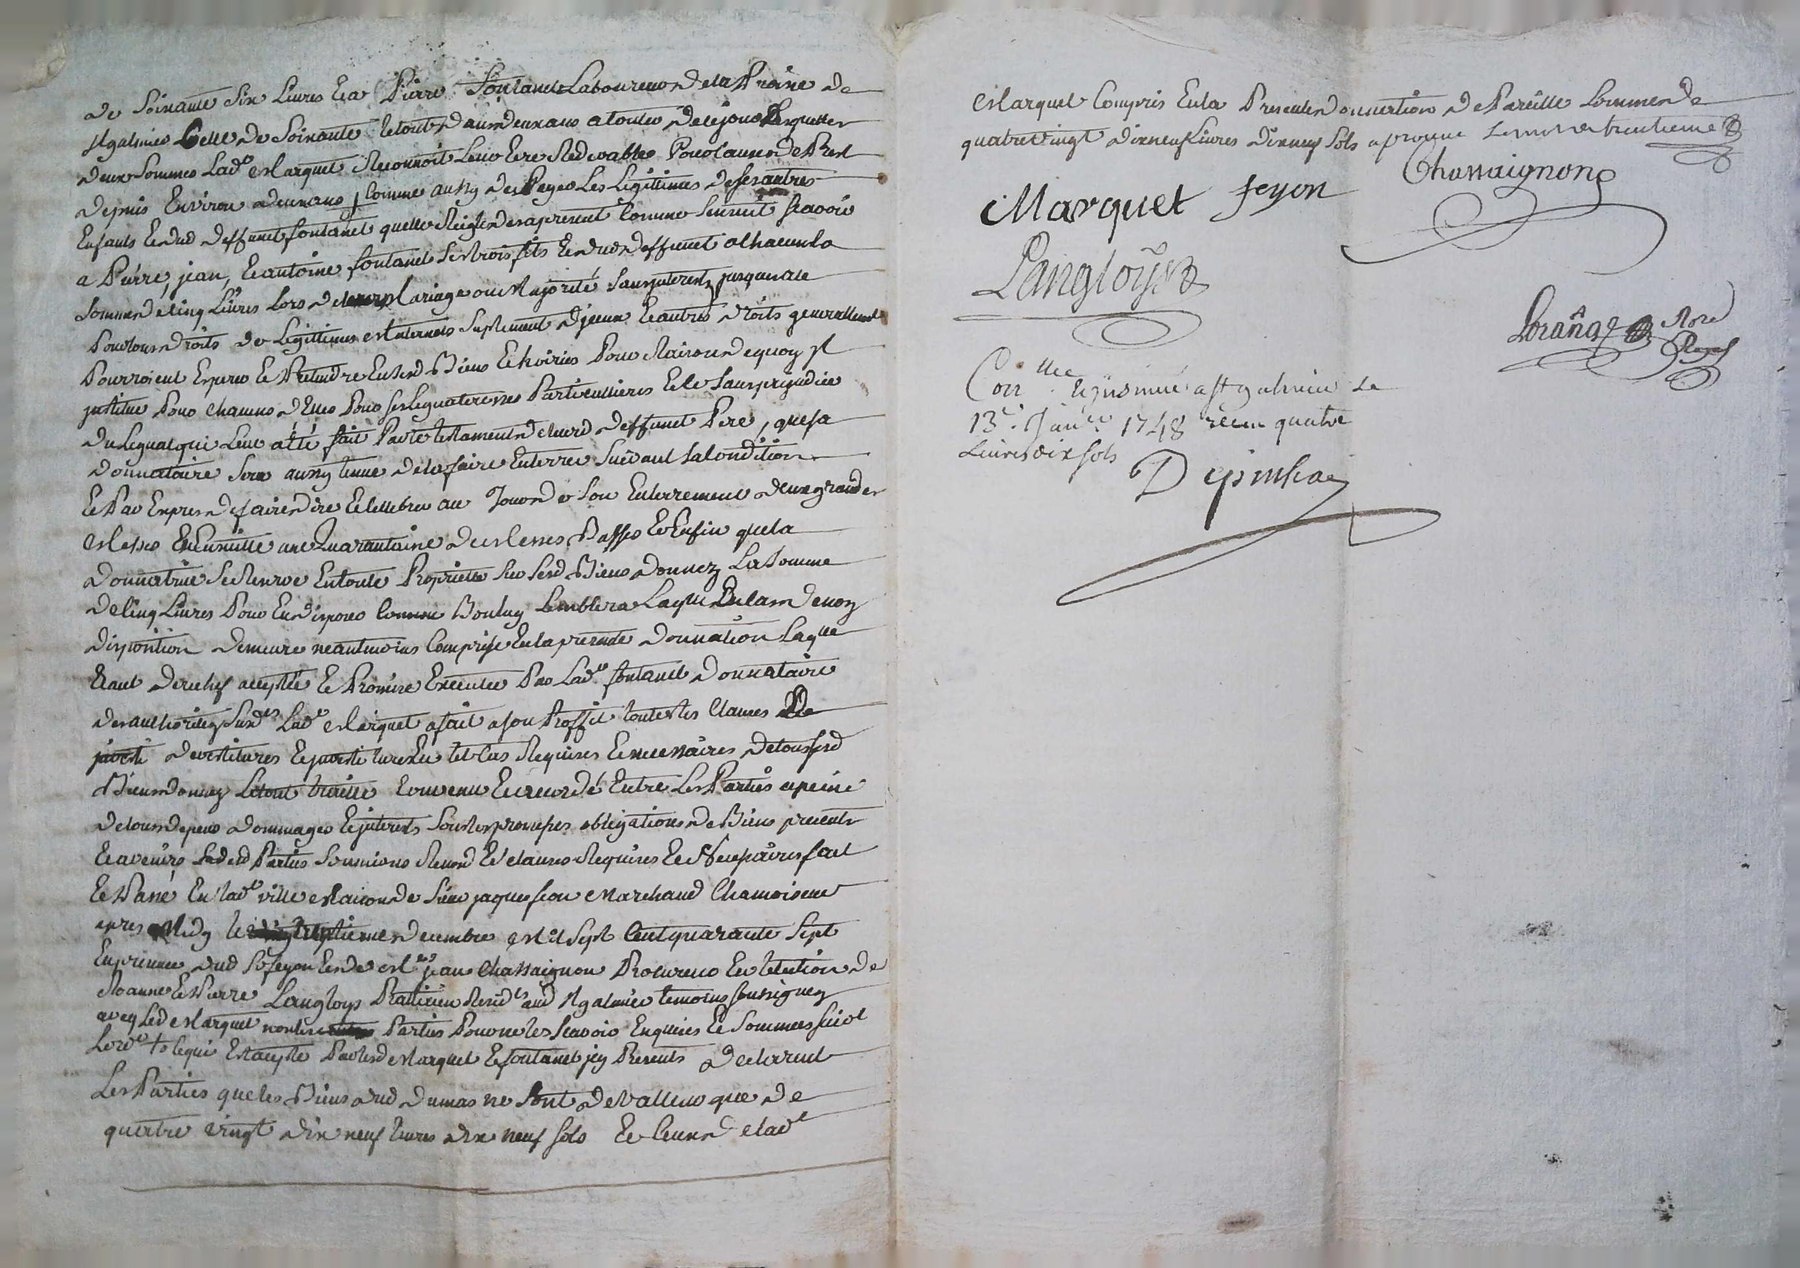 de soixante six Livres Et a Pierre fontanel Laboureur de la Proisse de
St galmier Celle de Soixante le tout dans deux ans a conter de ce jour Lesquelles
deux Sommes Lade Marquet Reconnoit Leur Etre Redevable Pour Cause de Prest
depuis Environ deux ans, Comme aussy de Payer Les Legitimes de ses autres
Enfants Et dud deffunct fontanel quelle Reigle des apresent Comme Sensuit scavoir
a Pierre, jean, Et antoine fontanel Ses trois fils Et dud deffunct a Chacun la
Somme de Cinq Livres Lors de leur Mariage ou Majorité Sans jnterests jusqualors
Pour tous droits de Legitimes Maternels Suplement djceux Et autres droits generallement
Pourroient Esperer Et Pretendre En sesd Biens Et hoiries Pour Raison de quoy jl
justitue Pour Chacuns dEux Pour ses Legataires Particulliers Et le Sans prejudice
du Legat qui Leur a eté fait Par le testament de leurd deffunct Pere, que sa
donnataire Sera aussy tenue de la faire Enterrer Suivant sa Condition
Et Par Expres de faire dire Et Cellebrer au Jour de son Enterrement deux grandes
Messes Et Ensuitte une Quarantaine de Messes Basses Et Enfin que la
donnatrice Se Reserve En toute Proprieté Sur sesd Biens donnez La Somme
de Cinq Livres Pour En disposer Comme Bon luy Semblera Laqlle En Cas de non
disposition demeure neantmoins Comprise En la presente donnation Laqlle
Etant derechef acceptée Et Promise Executer Par Lade fontanel donnataire
des authoritez Susdes Lade Marquet a fait a son Proffit toutes les Clauses De
devestitures Et jnvestitures En tel Cas Requises Et necessaires de tous sesd
Biens donnez Convenu Et accordé Entre Les Parties a peine
de tous depens dommages Et jnterests Sous les promesses obligations de Biens presents
Et avenirs desd Parties Soumissions Renond Et Clauses Requises Et Necessaires fait
Et Passé En lade ville Maison de Sieur jaques fion Marchand Chamoiseur
apres Midy le decembre Mil Sept Cent quarante Sept
En presence dud Sr feyon Et de Me jean Chassaignon Procureur En lelection de
Roanne Et Pierre Langloys Praticien Resid aud St galmier temoins soussignez
avec Led Marquet non les Parties Pour ne les scavoir Enquises Et Sommees suiv
Lorde Et accepté Par lesd Marquet Et fontanel jcy Presents declarent
Les Parties que les Biens dud dumas ne sont de valleur que de
quatre vingt dix neuf livres dix neuf sols Et Ceux de lade
Marquet Compris En la Presente donnation de Pareille Somme de
quatre vingt dix neuf Livres dix neuf Sols approuvé Le mot de trentieme
Marquet feyon Chassaignon
Langloys
Lorange Nore Royal
Conlle Et jnsinué a St galmier le
13e Janer 1748 recu quatre
Livres dix sols
Depinhac